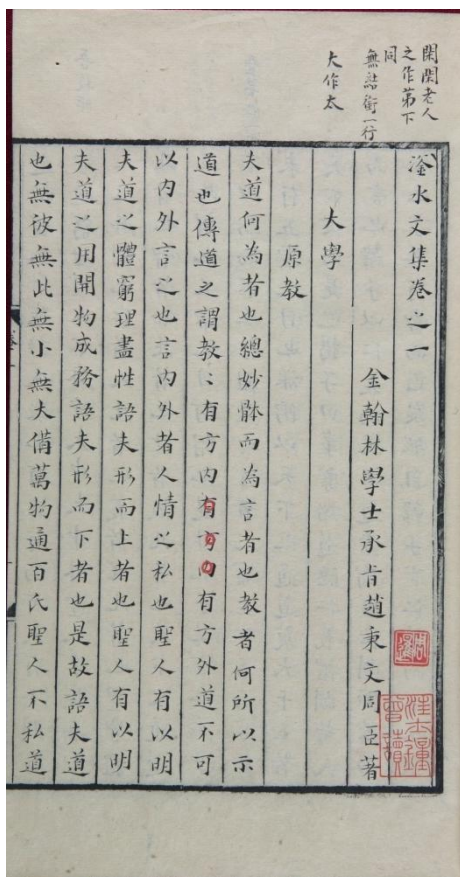 閑閑老人
之作第下
同
無結銜一行
大作太
滏水文集卷之一
金翰林學士承旨趙秉文同臣著
大學
原教
夫道何為者也總妙骵而為言者也教者何所以示
道也傳道之謂教〻有方内有方内有方外道不可
以内外言之也言内外者人情之私也聖人有以明
夫道之體窮理盡性語夫形而上者也聖人有以明
夫道之用開物成務語夫形而下者也是故語夫道
也無彼無此無小無大備萬物通百氏聖人不私道
汪士鐘
曾讀